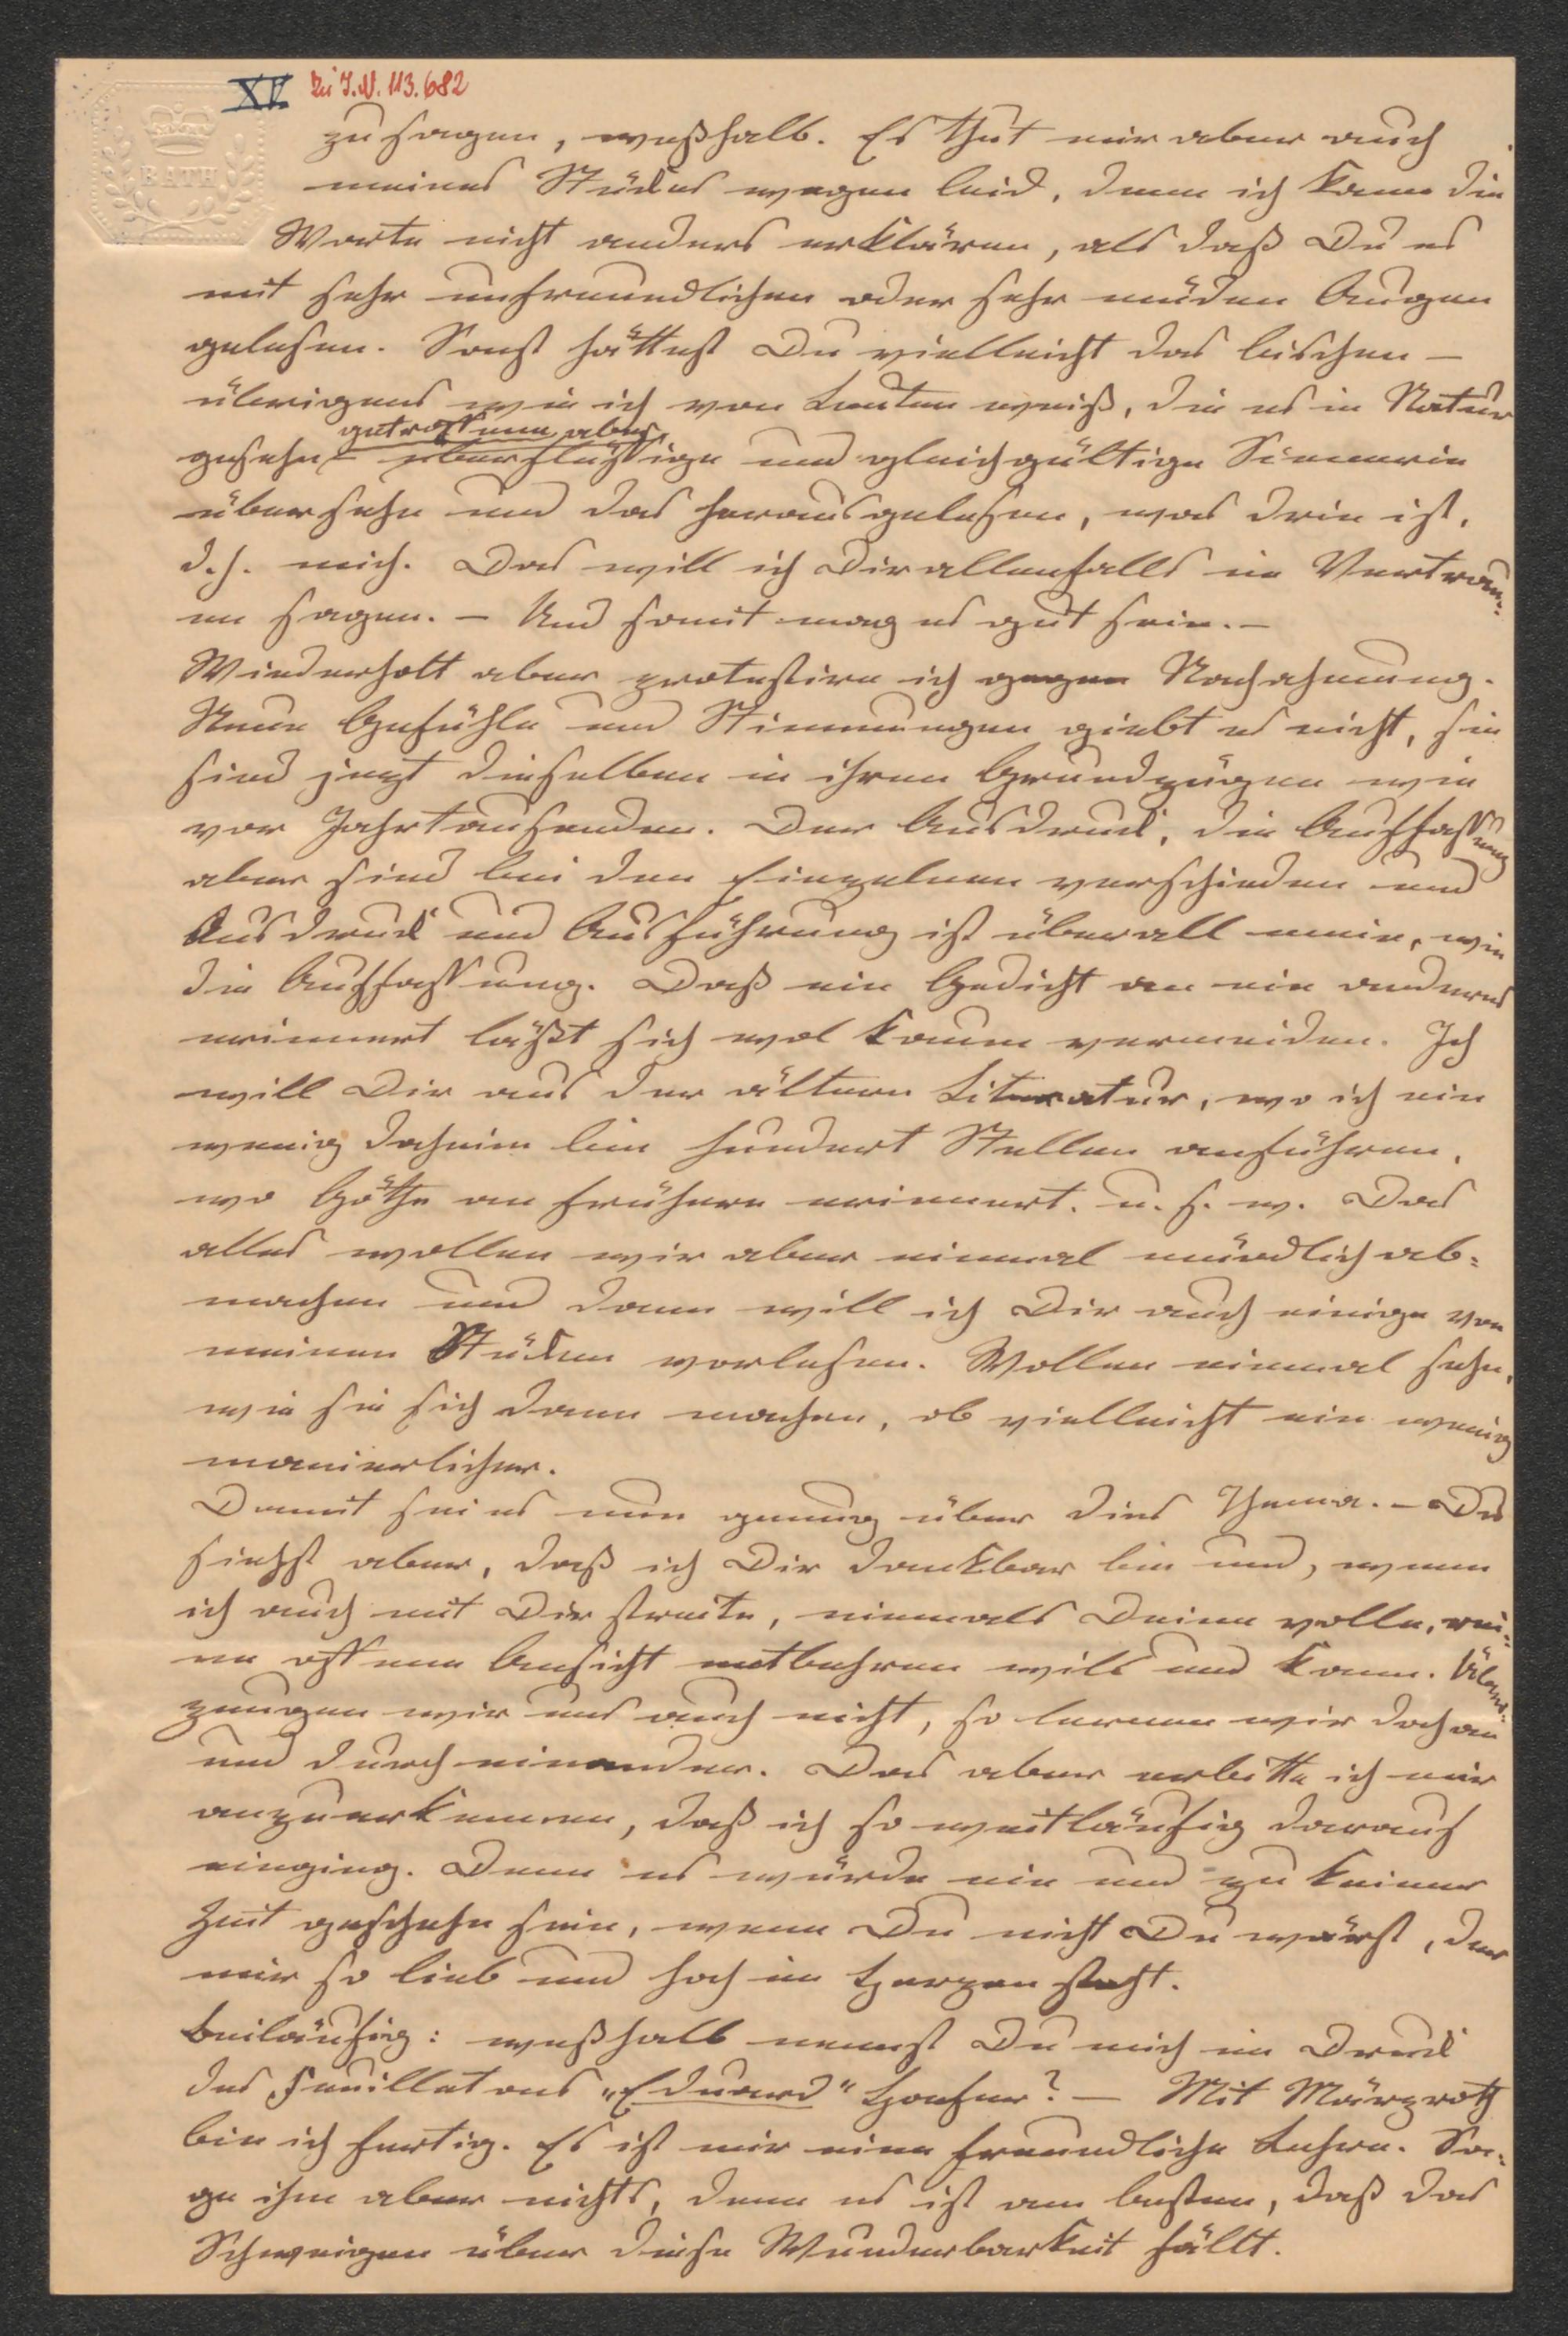 XV. Zu I.N. 113.682
BATH
zu sagen, weßhalb. Es thut mir aber auch
meines Stückes wegen leid, denn ich kann die
Worte nicht anders erklären, als daß Du es
mit sehr unfreundlichen oder sehr müden Augen
gelesen. Sonst hättest Du vielleicht das bischen –
übrigens wie ich von Leuten weiß, die es in Natur
getroffene aber
gesehn – überflüssige und gleichgültige Scenerie
übersehn und das herausgelesen, was drin ist,
d. h. mich. Das will ich Dir allenfalls im Vertrau-
en sagen. – Und somit mag es gut sein. –
Wiederholt aber protestire ich gegen Nachahmung.
Neue Gefühle und Stimmungen giebt es nicht, sie
sind jezt dieselben in ihren Grundzügen wie
vor Jahrtausenden. Der Ausdruck, die Auffassung
aber sind bei den Einzelnen verschieden und
Ausdruck und Ausführung ist überall mein, wie
die Auffassung. Daß ein Gedicht an ein anderes
erinnert läßt sich wol kaum vermeiden. Ich
will Dir aus der ältern Literatur, wo ich ein
wenig daheim bin hundert Stellen anführen,
wo Göthe an frühere erinnert. u. s. w. Das
alles wollen wir aber einmal mündlich ab-
machen und dann will ich Dir auch einige von
meinen Stücken vorlesen. Wollen einmal sehn,
wie sie sich dann machen, ob vielleicht ein wenig
manierlicher.
Damit sei es nun genug über dies Thema. – Du
siehst aber, daß ich Dir dankbar bin und, wenn
ich auch mit Dir streite, niemals Deine volle, rei-
ne offene Ansicht entbehren will und kann. Über-
zeugen wir uns auch nicht, so lernen wir doch an
und durch einander. Das aber erbitte ich mir
anzuerkennen, daß ich so weitläufig darauf
einging. Denn es würde nie und zu keiner
Zeit geschehn sein, wenn Du nicht Du wärst, der
mir so lieb und hoch im Herzen steht.
Beiläufig: weßhalb nennst Du mich im Druck
des Feuilletons „Eduard“ Hoefer? – Mit Märzroth
bin ich fertig. Es ist mir eine freundliche Lehre. Sa-
ge ihm aber nichts, denn es ist am besten, daß das
Schweigen über diese Wunderbarkeit fällt.